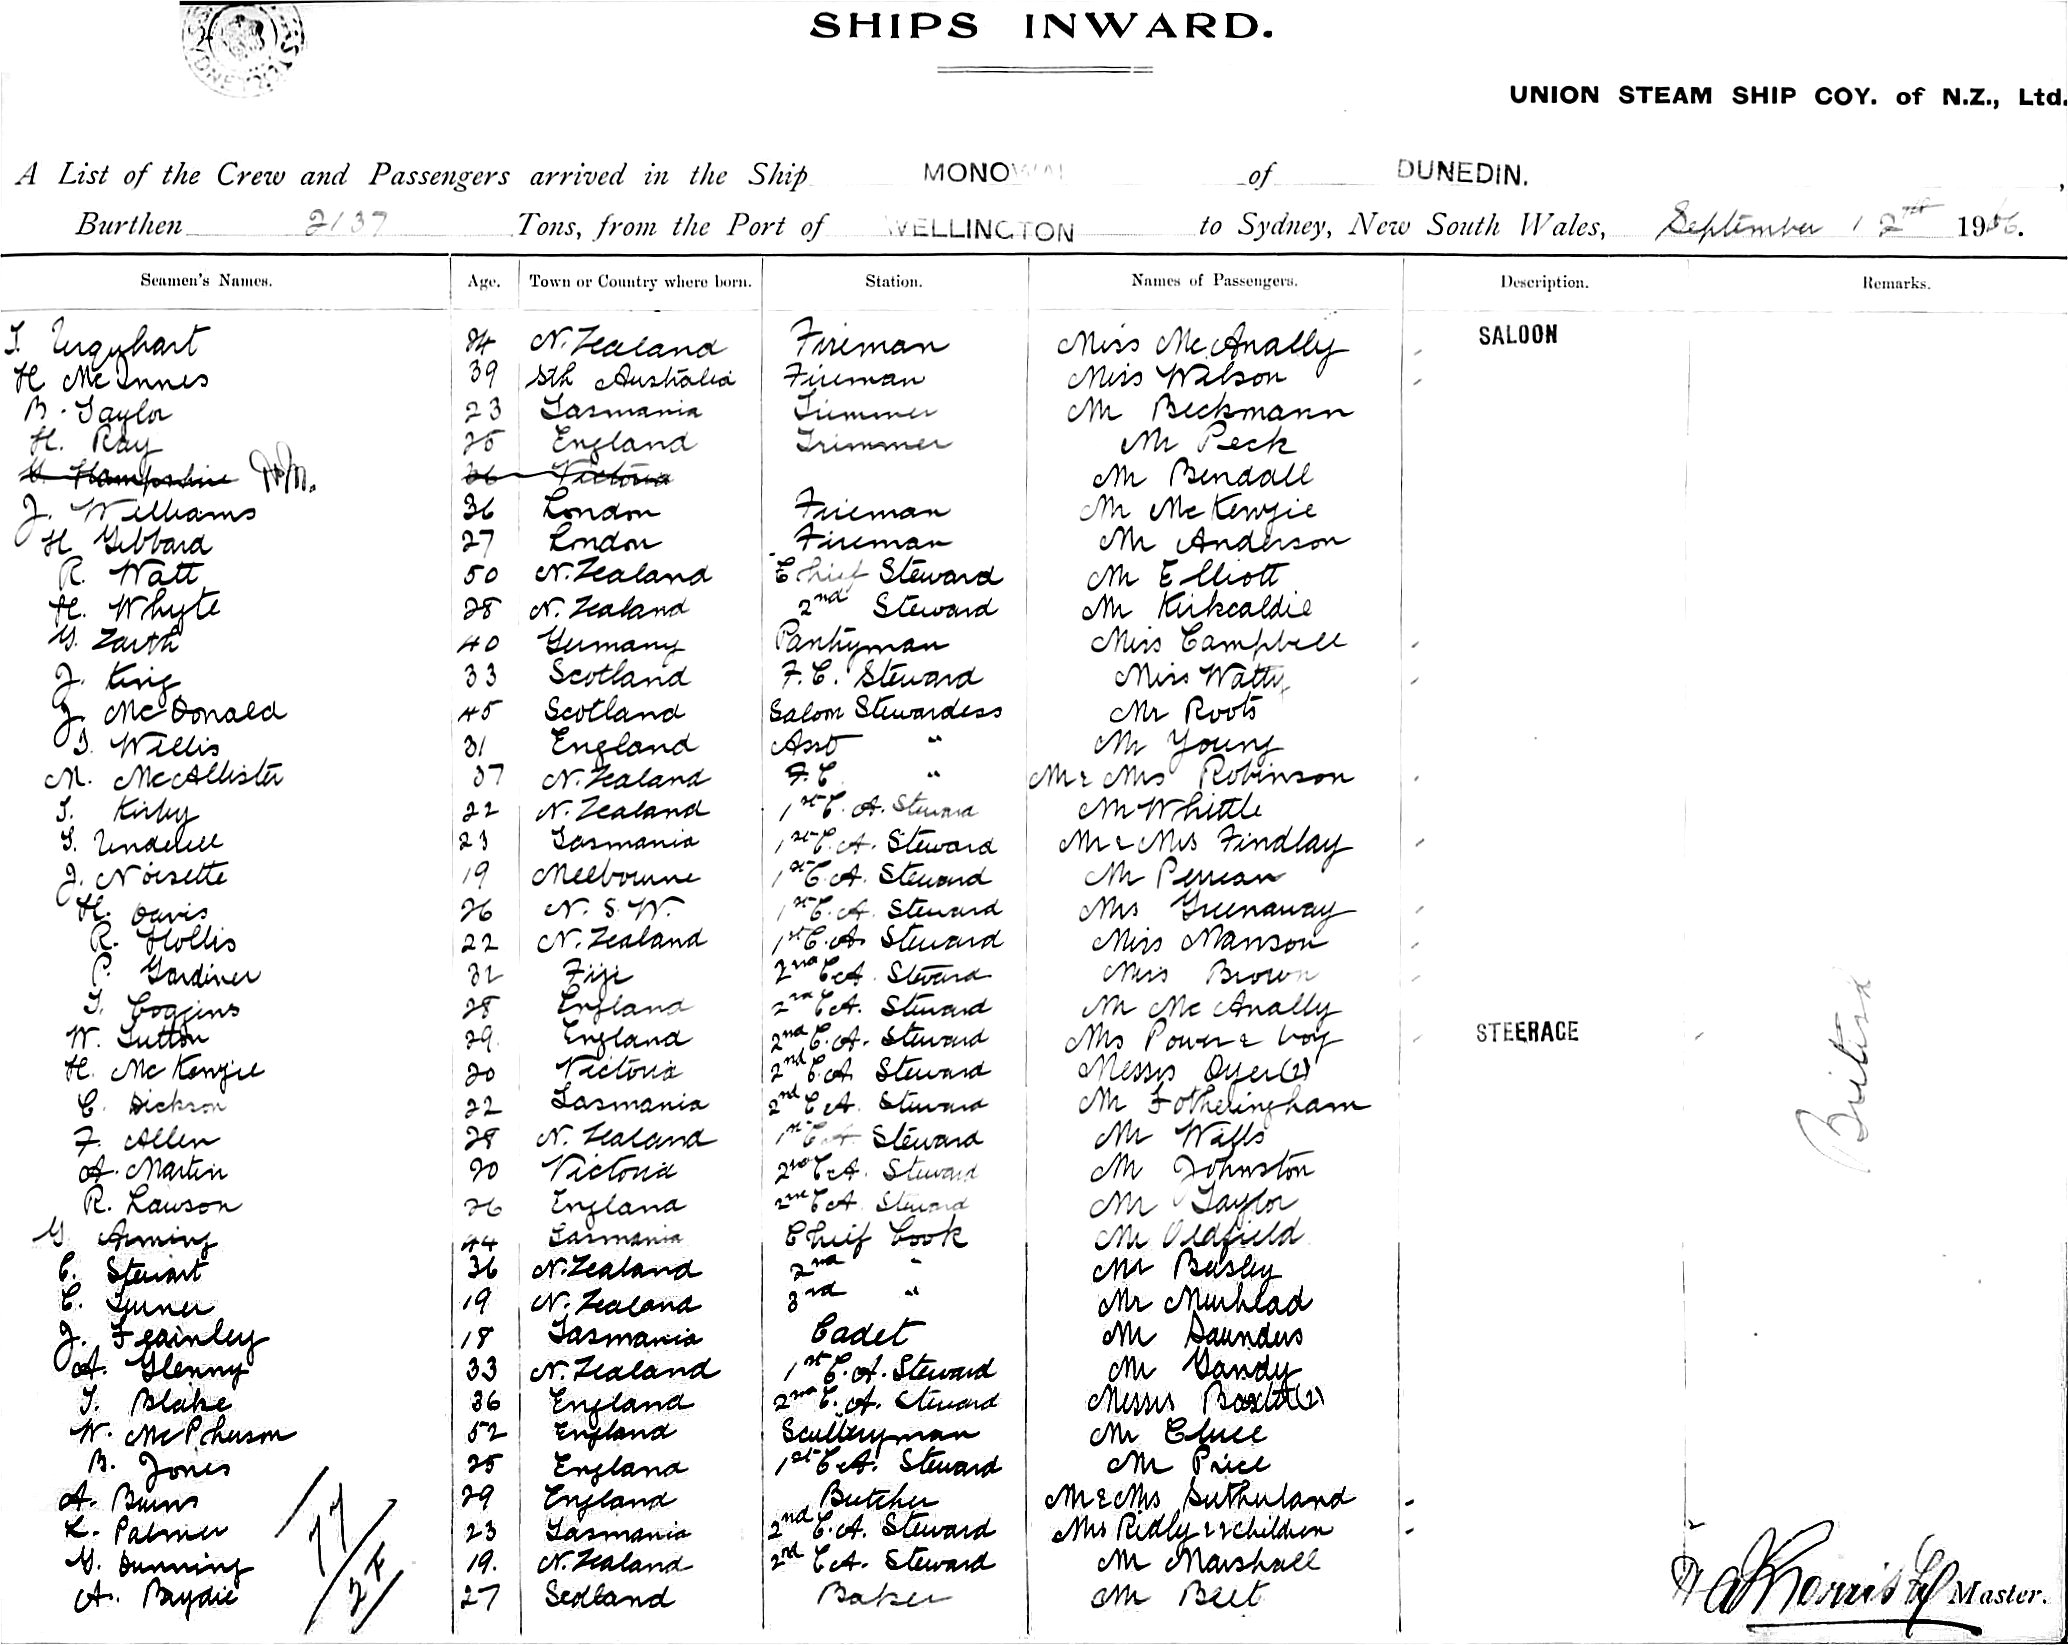 SHIPS INWARD.
UNION STEAM SHIP COY. of N.Z., Ltd.
A List of the Crew and Passengers arrived in the Ship MONOWAI of DUNEDIN.,
Burthen 2137 Tons, from the Port of WELLINGTON to Sydney, New South Wales, September 12th 19
Seamen's Names. Age. Town or Country where born. Station. Names of Passengers. Description. Remarks.
T. Urquhart 24 N. Zealand Fireman Miss McAnally SALOON
H McInnes 39 Sth Australia Fireman Miss Wilson
B. Taylor 23 Tasmania Trimmer Mr Beckmann
H. Ray 25 England Trimmer Mr Peck
Hampshire 36 Victoria Mr Bendall
J. Williams 36 London Fireman Mr McKenzie
H Gibbard 27 London Fireman Mr Anderson
R. Watt 50 N. Zealand Chief Steward Mr Elliott
H. Whyte 28 N. Zealand 2nd Steward Mr Kirkcaldie
G. Zarth 40 Germany Pantryman Miss Campbell
J. King 33 Scotland F.C. Steward Miss Watty
J. McDonald 45 Scotland Saloon Stewardess Mr Roots
S. Willis 31 England Asst " Mr Young
M. McAllister 37 N. Zealand F.C " Mr & Mrs Robinson
T. Kirby 22 N. Zealand 1st C. A. Steward Mr Whittle
T. Underell 23 Tasmania 1st C. A. Steward Mr & Mrs Findlay
J. Noisette 19 Melbourne 1st C. A. Steward Mr Perman
H. Davis 26 N. S. W. 1st C. A. Steward Mrs Greenaway
R. Hollis 22 N. Zealand 1st C. A. Steward Miss Manson
P. Gardiner 32 Fiji 2nd C A. Steward Miss Brown
T. Coggins 28 England 2nd C A. Steward Mr McAnally
W. Sutton 29. England 2nd C. A. Steward Mrs Power & boy STEERAGE
H. McKenzie 20 Victoria 2nd C. A Steward Messrs Dyer (2)
C. Dickson 22 Tasmania 2nd C A. Steward Mr Fotheringham
F. Allen 28 N. Zealand 1st C A Steward Mr Wills
A. Martin 20 Victoria 2nd C A. Steward Mr Johnston
R. Lawson 26 England 2nd C A. Steward Mr Taylor
G. Arming 44 Tasmania Chief Cook Mr Oldfield
C. Stewart 36 N. Zealand 2nd " Mr Busley
C. Turner 19 N. Zealand 3rd " Mr Muirhead
J. Feainley 18 Tasmania Cadet Mr Saunders
A. Glenny 33 N. Zealand 1st C. A. Steward Mr Gandy
T. Blake 36 England 2nd C. A. Steward Messrs Baxter (2)
W. McPherson 52 England Sculleryman Mr Cluee
B. Jones 25 England 1st C A. Steward Mr Price
A. Burns 29 England Butcher Mr & Mrs Sutherland
L. Palmer 23 Tasmania 2nd C. A. Steward Mrs Ridly & 2 children
G. Dunning 19. N. Zealand 2nd C A. Steward Mr Marshall
A. Baydie 27 Scotland Baker Mr Belt
British
77
Master.